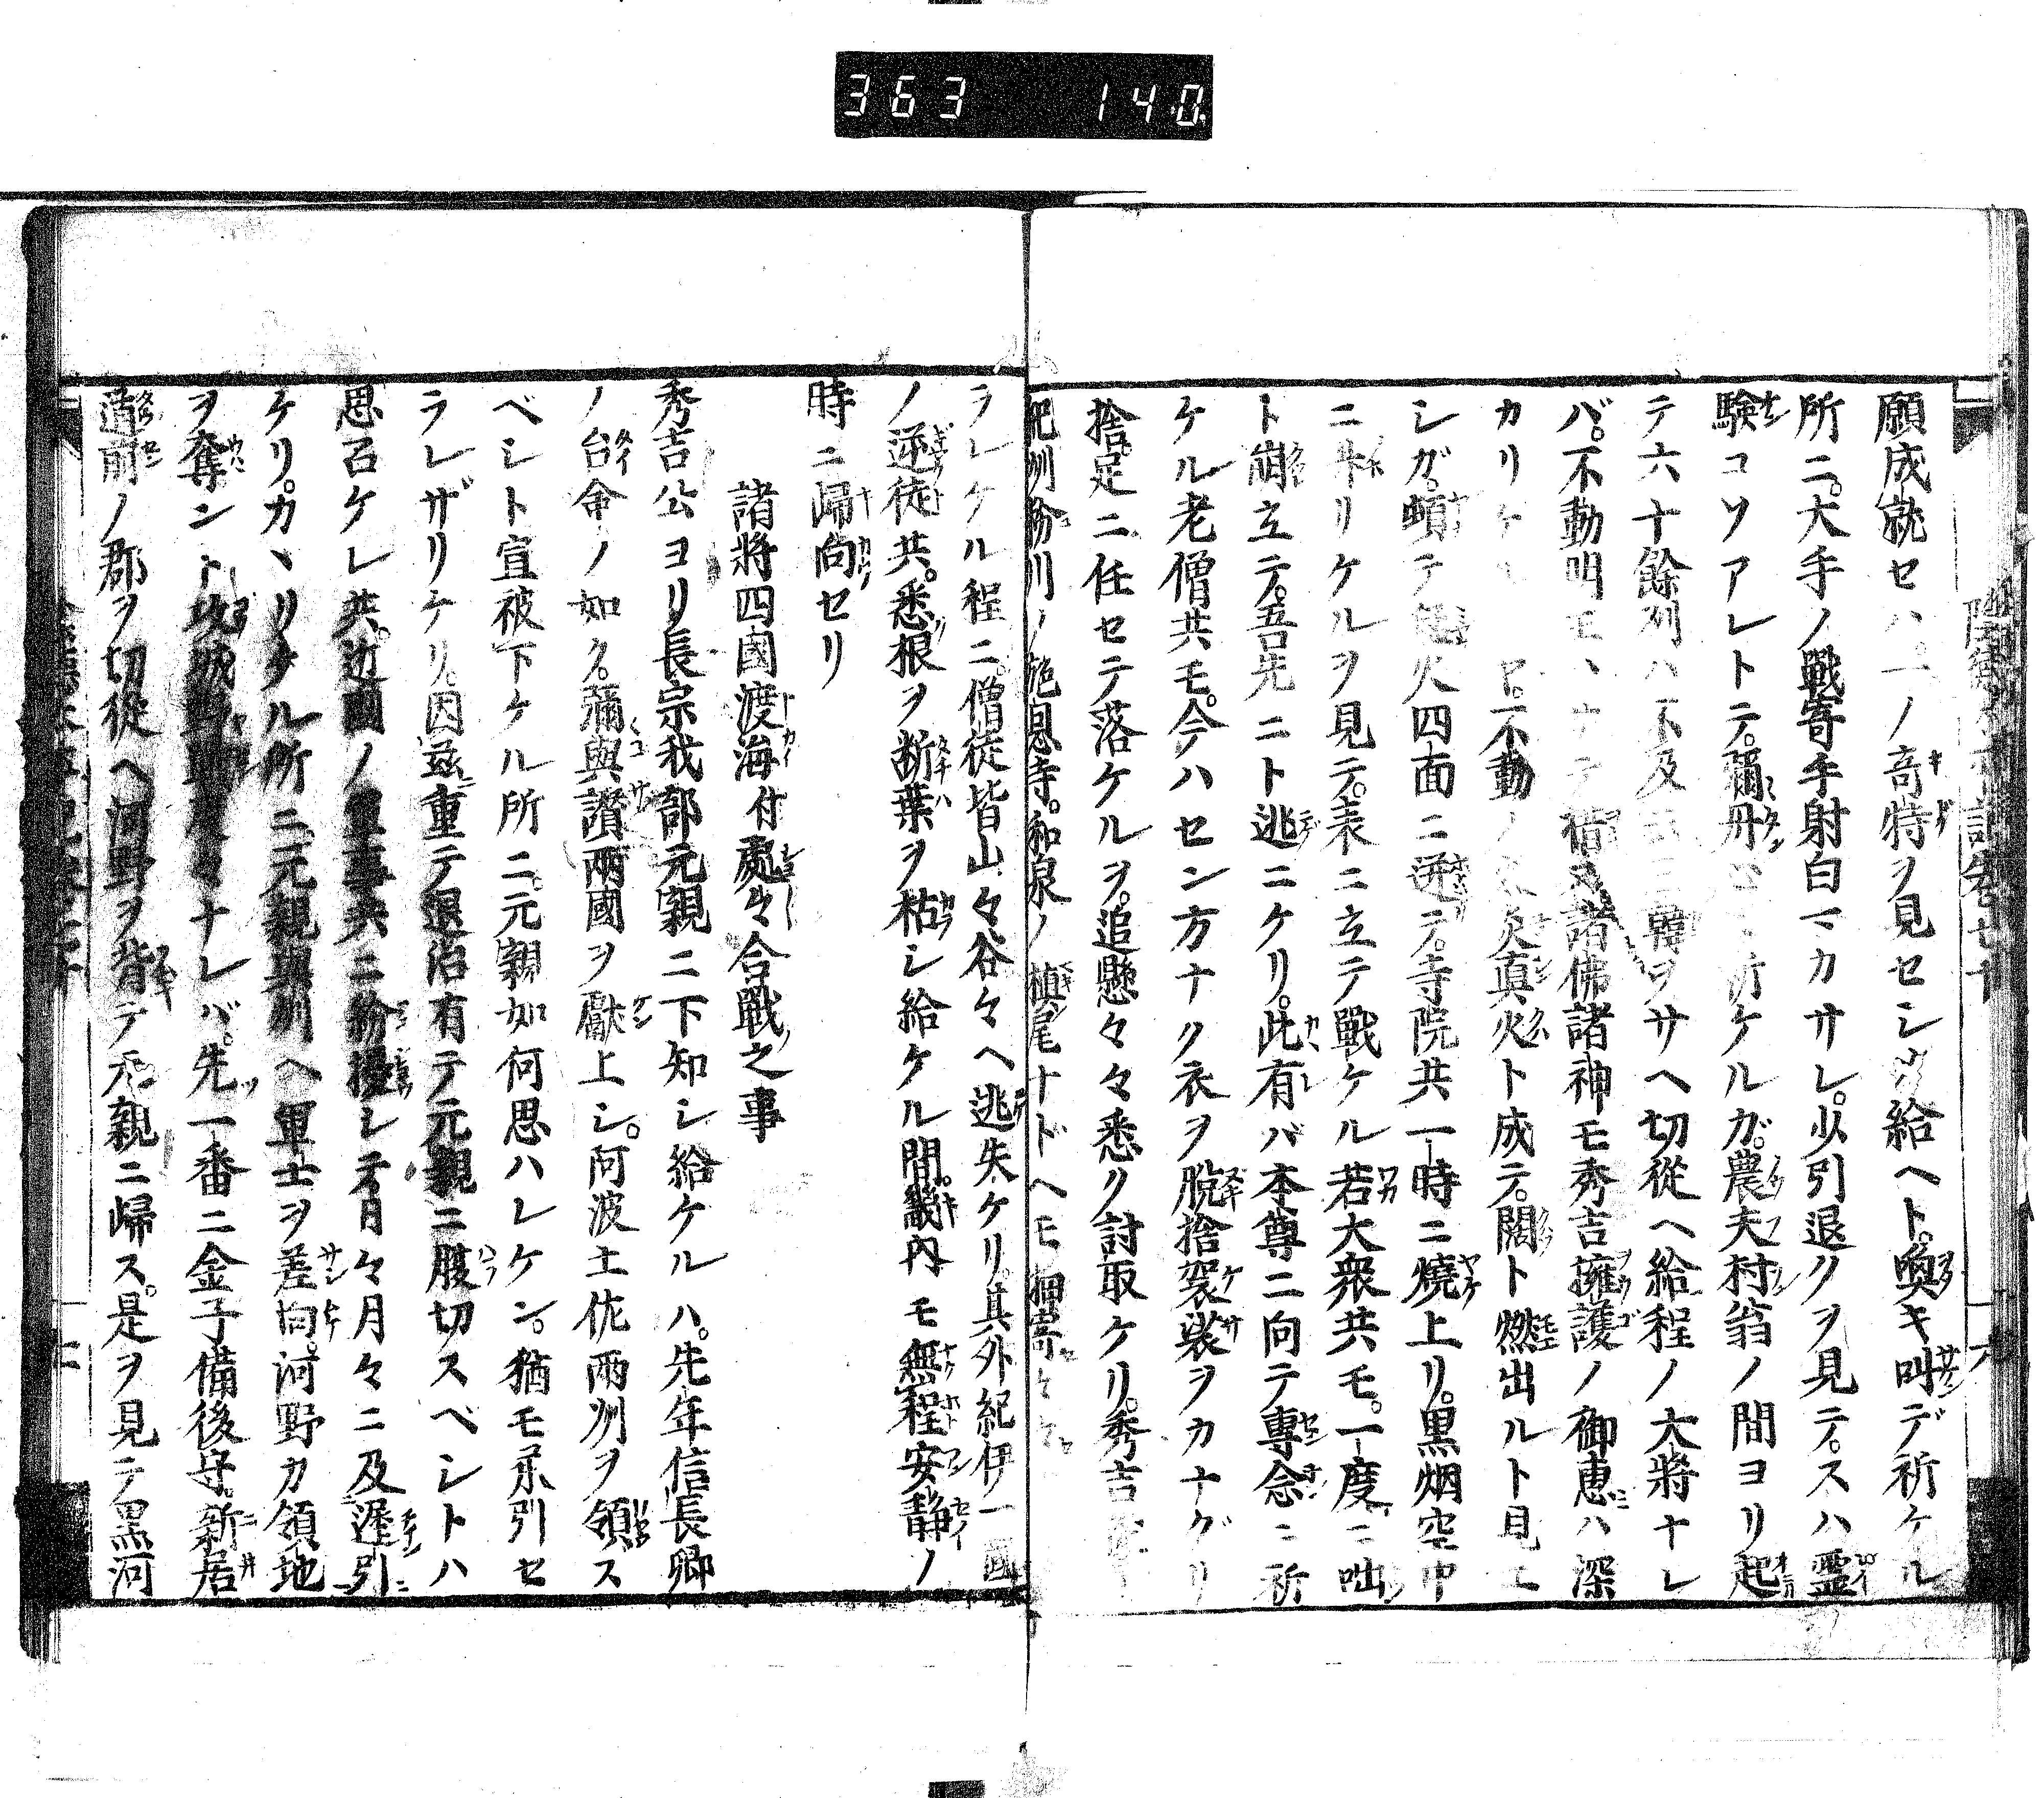 363 140
願成就セハ。一ノ奇特ヲ見セシメ給ヘト。喚キ叫デ祈ケル
所ニ。大手ノ戰寄手射白マカサレ。少引退クヲ見テ。スハ靈
驗コソアレトテ。彌丹 祈ケルガ。農夫村翁ノ間ヨリ起
テ六十餘州ハ不及 三韓ヲサヘ切從ヘ給程ノ大將ナレ
バ。不動明モ 諸佛諸神モ秀吉擁護ノ御惠ハ深
カリケ 不動ノ 真火ト成テ。閧ト燃出ルト見エ
シガ。 テ 火四面ニ迸テ。寺院共一時ニ燒上リ。黒烟空中
ニ リケルヲ見テ。表ニ立テ戰ケル若大衆共モ。一度ニ咄
ト崩立テ。吾先ニト逃ニケリ。此有バ本尊ニ向テ專念ニ祈
ケル老僧共モ。今ハセン方ナク衣ヲ脱捨袈裟ヲカナグリ
捨。足ニ任セテ落ケルヲ。追懸々々悉ク討取ケリ。秀吉
紀州粉川ノ施恩寺。和泉ノ槙尾ナトヘモ押寄々々
ラレケル程ニ。僧徒皆山々谷々ヘ逃失ケリ。其外紀伊一國
ノ逆徒共。悉根ヲ断葉ヲ枯シ給ケル間。畿内モ無程安静ノ
時ニ歸向セリ
諸將四國渡海付處々合戰之事
秀吉公ヨリ長宗我部元親ニ下知シ給ケルハ。先年信長卿
ノ台命ノ如ク。彌與讃兩國ヲ獻上シ。阿波土佐兩州ヲ領ス
ベシト宣被下ケル所ニ。元親如何思ハレケン。猶モ承引セ
ラレザリケリ。因茲重テ退治有テ元親ニ腹切スベシトハ
思召ケレ共。近國ノ軍事共ニ紛擾シテ月々月々ニ及遅引
ケリ。カヽリケル所ニ元親與州ヘ軍士ヲ差向。河野カ領地
ヲ奪ント攻城 度々ナレバ。先一番ニ金子備後守。新居
道前ノ郡ヲ切從ヘ河野ヲ背テ元親ニ歸ス。是ヲ見テ黒河